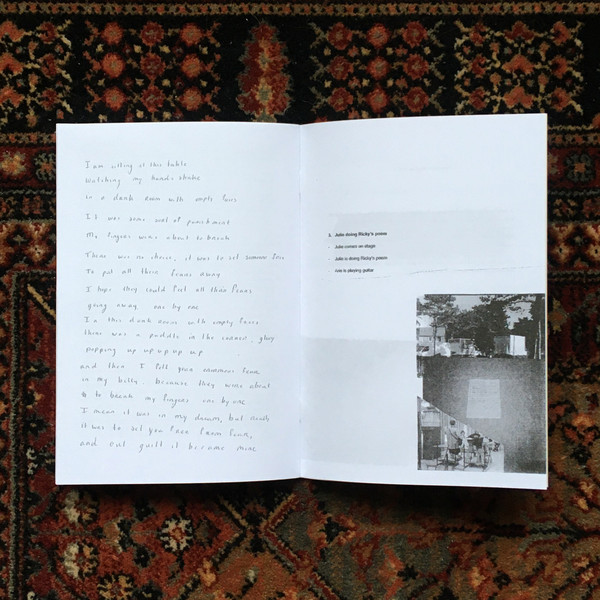 I am sitting at this table
watching my hands shake
in a dark room with empty
It was some sort of punishment
My fingers were about to break
There was no choice, it was to set someone free
To put all their fears away
I hope they could put all their fears
going away one by one
In this dark room with empty
there was a puddle in the corner,
popping up up up up up
and then I felt your enormous fear
in my belly. because they were about
to break my fingers one by one
I mean it was in my dream, but
it was to let you free from fear,
and out guilt it became mine
3. Julie doing Ricky's poem
- Julie comes on stage
- Julie is doing Ricky's poem
- is playing guitar